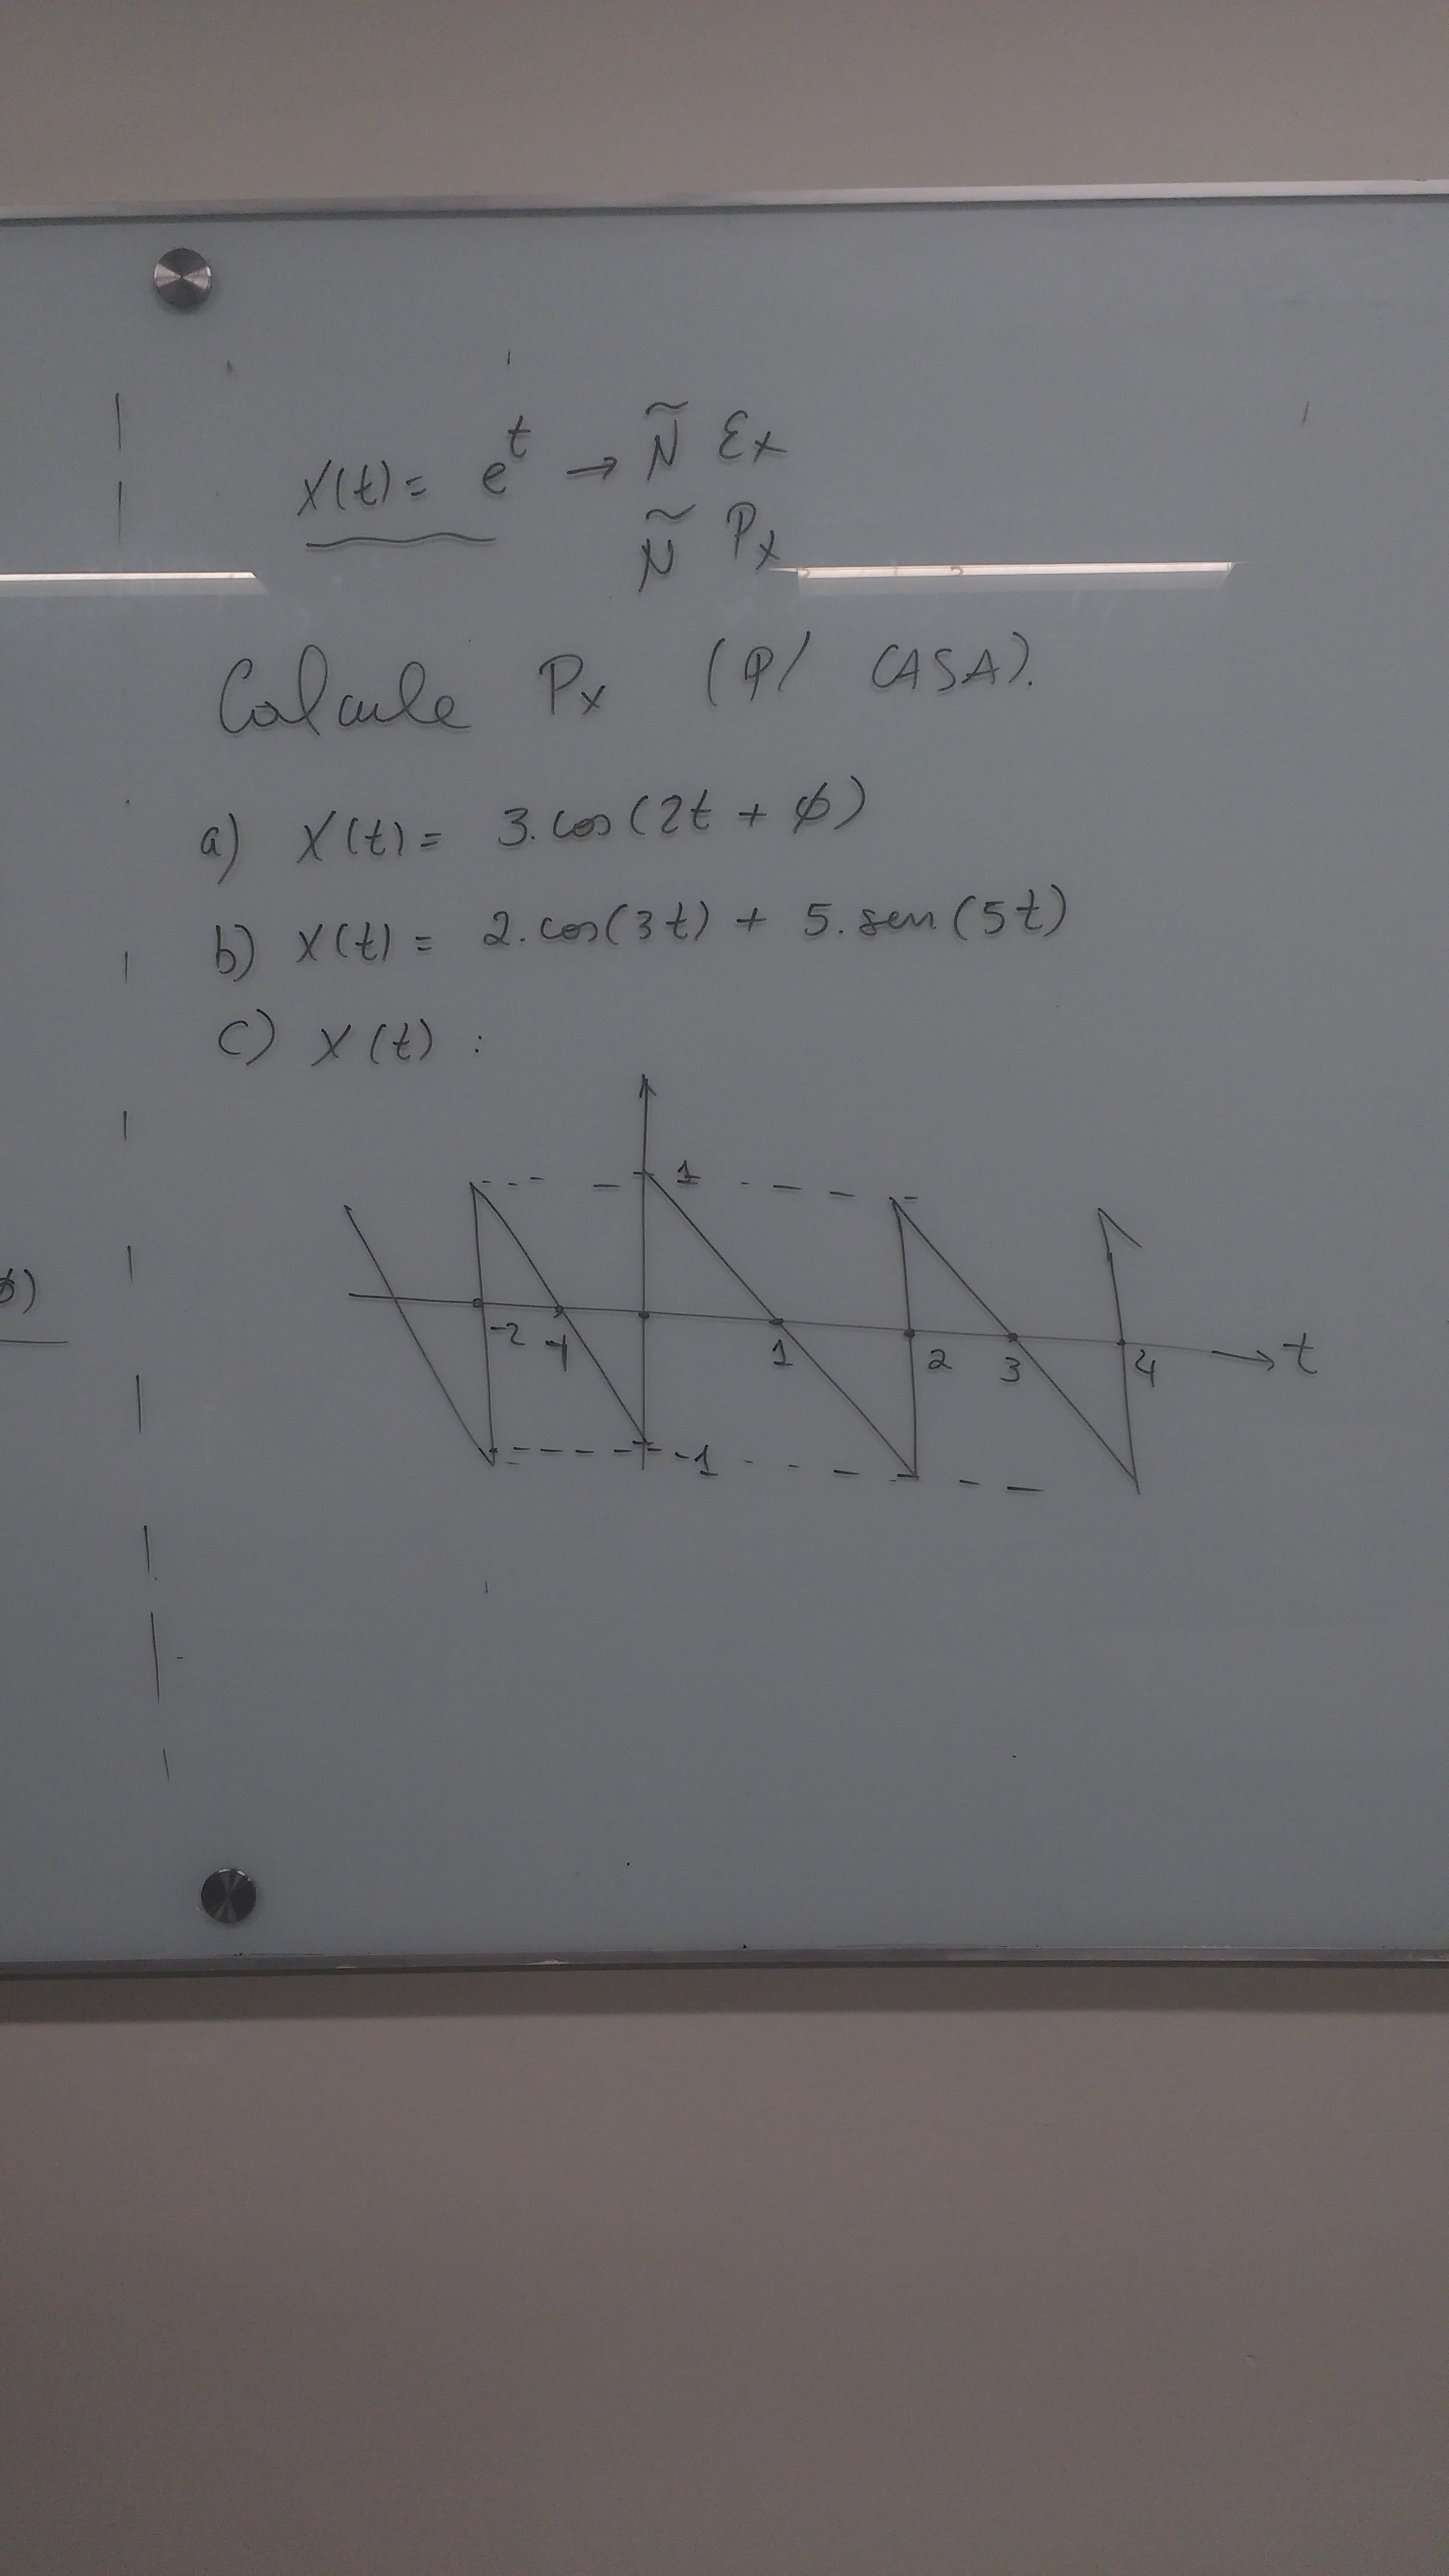 x(t) = e^t → Ñ Ex
Ñ Px
Calcule Px (P/ CASA).
a) x(t) = 3.cos(2t + ϕ)
b) x(t) = 2.cos(3t) + 5.sen(5t)
c) x(t) :
1
ϕ)
-2 -1 1 2 3 4 → t
-1